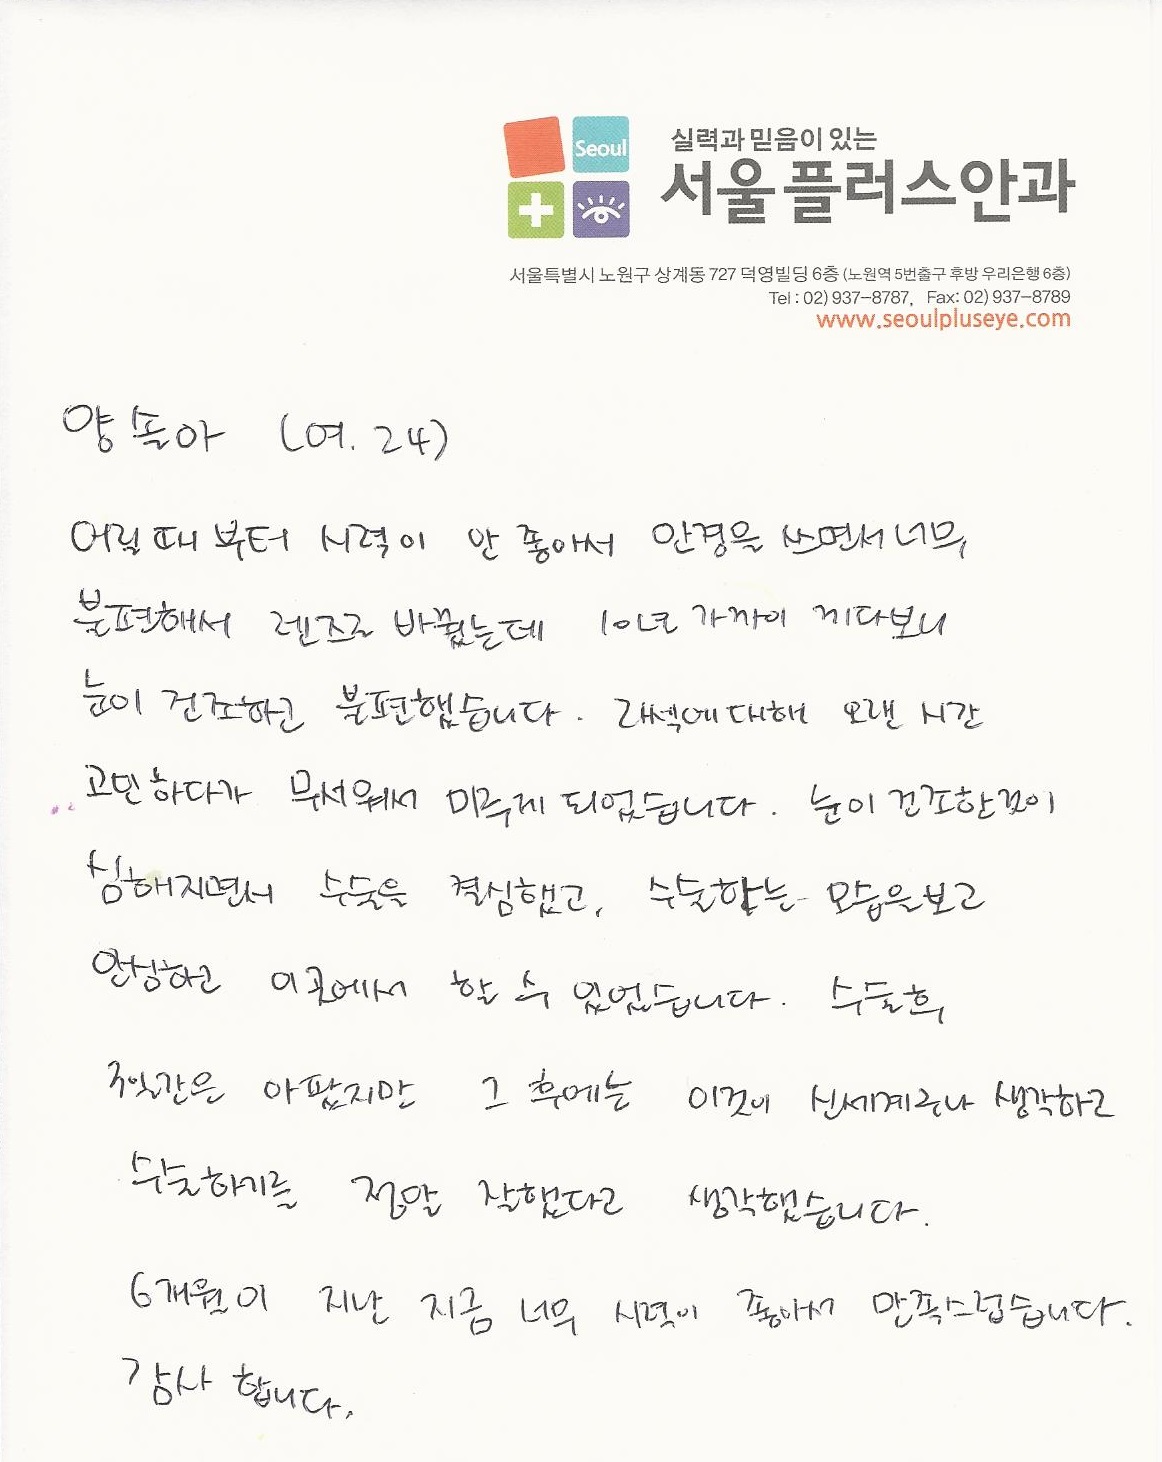 Seoul
실력과 믿음이 있는
서울플러스안과
서울특별시 노원구 상계동 727 덕영빌딩 6층 (노원역 5번출구 후방 우리은행 6층)
Tel : 02) 937-8787, Fax: 02) 937-8789
www.seoulpluseye.com
양솔아 (여. 24)
어릴때 부터 시력이 안 좋아서 안경을 쓰면서 너무
불편해서 렌즈로 바꿨는데 10년 가까이 끼다보니
눈이 건조하고 불편했습니다. 라섹에대해 오랜 시간
고민하다가 무서워서 미루게 되었습니다. 눈이 건조한것이
심해지면서 수술을 결심했고, 수술하는 모습을보고
안심하고 이곳에서 할 수 있었습니다. 수술후
3일간은 아팠지만 그 후에는 이것이 신세계구나 생각하고
수술하기를 정말 잘했다고 생각했습니다.
6개월이 지난 지금 너무 시력이 좋아서 만족스럽습니다.
감사 합니다.